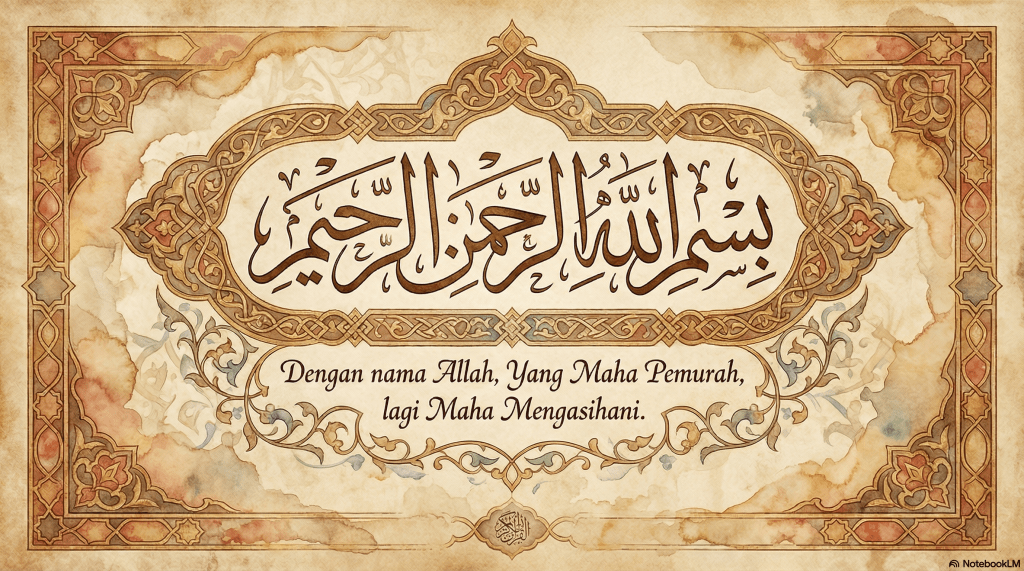 بِسْمِ اللَّهِ الرَّحْمَنِ الرَّحِيمِ
Dengan nama Allah, Yang Maha Pemurah,
lagi Maha Mengasihani.
NotebookLM